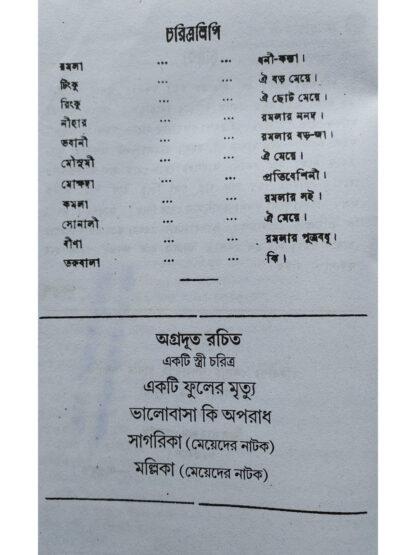 চরিত্রলিপি
রমলা ... ... ধনী-কন্যা।
টিংকু ... ... ঐ বড় মেয়ে।
রিংকু ... ... ঐ ছোট মেয়ে।
নীহার ... ... রমলার ননদ।
ভবানী ... ... রমলার বড়-জা।
মৌসুমী ... ... ঐ মেয়ে।
মোক্ষদা ... ... প্রতিবেশিনী।
কমলা ... ... রমলার সই।
সোনালী ... ... ঐ মেয়ে।
বীণা ... ... রমলার পুত্রবধূ।
তরুবালা ... ... ঝি।
অগ্রদূত রচিত
একটি স্ত্রী চরিত্র
একটি ফুলের মৃত্যু
ভালোবাসা কি অপরাধ
সাগরিকা (মেয়েদের নাটক)
মল্লিকা (মেয়েদের নাটক)